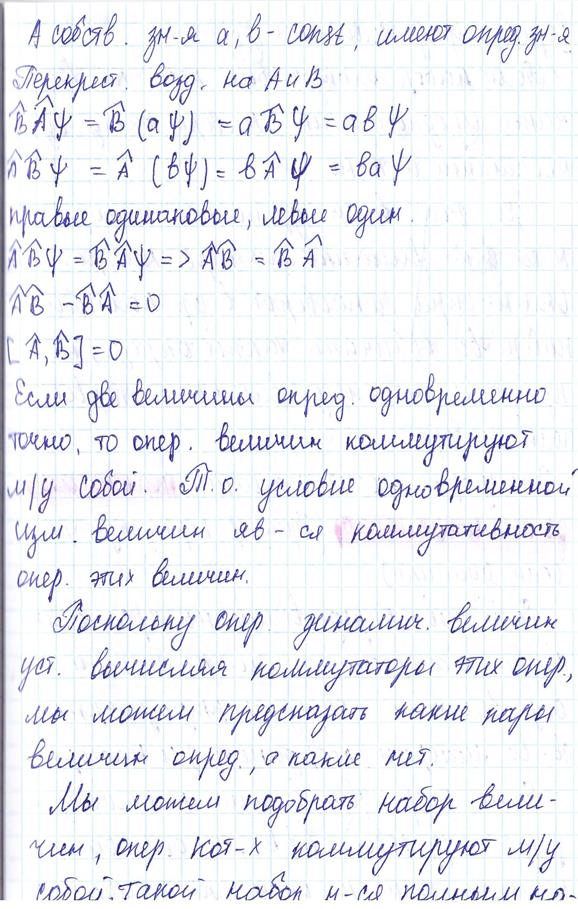 А собств. зн-я a, b - const, имеют опред. зн-я
Перекрест. возд. на A и B
B̂Âψ = B̂(aψ) = aB̂ψ = abψ
ÂB̂ψ = Â(bψ) = bÂψ = baψ
правые одинаковые, левые один.
ÂB̂ψ = B̂Âψ => ÂB̂ = B̂Â
ÂB̂ - B̂Â = 0
[Â, B̂] = 0
Если две величины опред. одновременно
точно, то опер. величин коммутируют
м/у собой. Т.о. условие одновременной
изм. величин яв-ся коммутативность
опер. этих величин.
Поскольку опер. динамич. величин
уст. вычисляя коммутаторы этих опер.,
мы можем предсказать какие пары
величин опред., а какие нет.
Мы можем подобрать набор вели-
чин, опер. кот-х коммутируют м/у
собой. такой набор н-ся полным на-